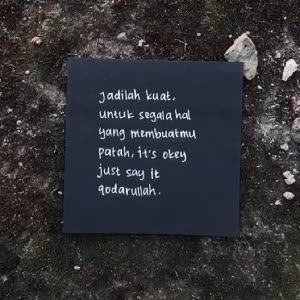 jadilah kuat,
untuk segala hal
yang membuatmu
patah, it's okey
just say it
qodarullah.